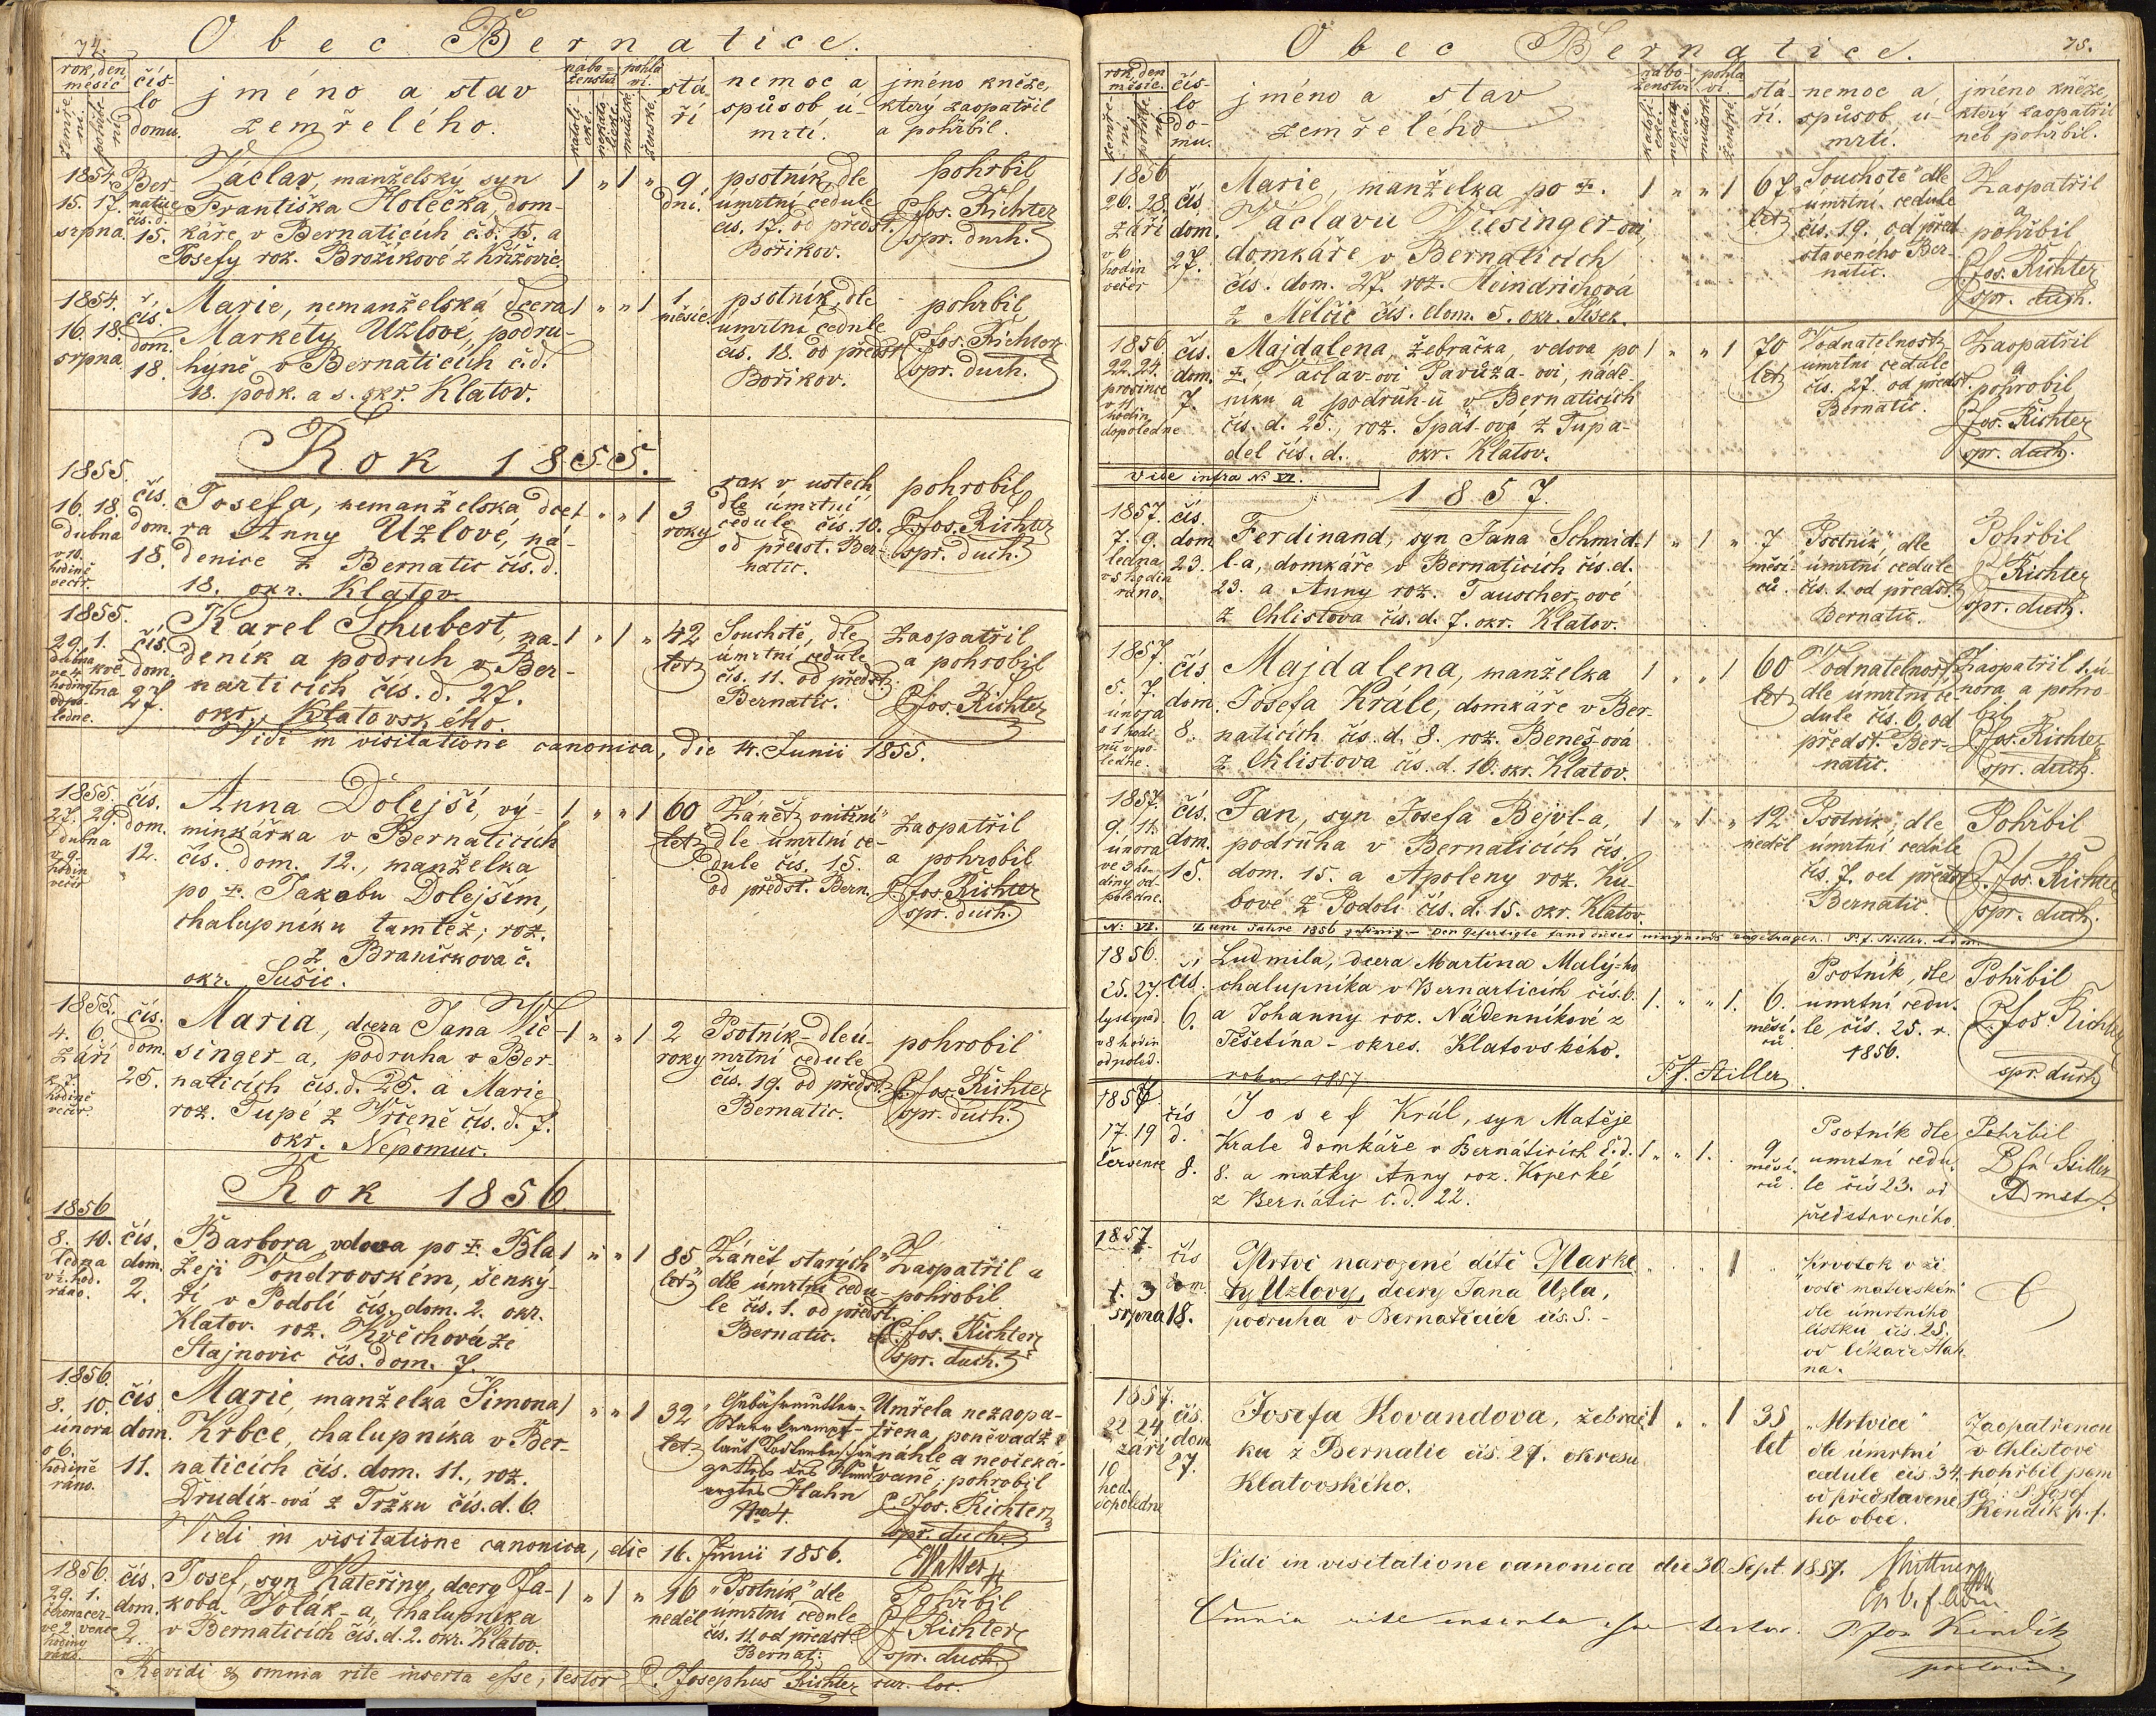 74.
Obec Bernatice.
rok, den, měsíc
zemření. pohřbení
číslo domu.
jméno a stav
zemřelého.
náboženství
katolické. nekatolické.
pohlaví.
mužské. ženské.
stáří
nemoc a
spůsob úmrtí.
jméno kněze,
který zaopatřil
a pohřbil.
1854
15. 17.
srpna.
Bernatice
čís. d.
15.
Václav, manželský syn
Františka Holečka, domkáře
v Bernaticích č.d. 15. a
Josefy roz. Brožíkové z Křížovic.
1 „ 1 „
9
dní.
psotník dle
úmrtní cedule
čís. 17. od předst.
Bořikov.
pohřbil
P. Jos. Richter
spr. duch.
1854.
16. 18.
srpna.
čís.
dom.
18.
Marie, nemanželská dcera
Markéty Uzlové, podruhyně
v Bernaticích č.d.
18. podk. a s. okr. Klatov.
1 „ „ 1
1
měsíc.
psotník, dle
úmrtní cedule
čís. 18. od předst.
Bořikov.
pohrbil
P. Jos. Richter
spr. duch.
Rok 1855.
1855.
16. 18.
dubna
v 10.
hodině
večer.
čís.
dom.
18.
Josefa, nemanželska dcera
Anny Uzlové, nádenice
z Bernatic čís. d.
18. okr. Klatov.
1 „ „ 1
3
roky
rak v ustech
dle úmrtní
cedule čís. 10.
od předst. Bernatic.
pohrobil
P. Jos. Richter
spr. duch.
1855.
29. 1.
dubna května
ve 4
hodiny
odpoledne.
čís.
dom.
27.
Karel Schubert, nadeník
a podruh v Bernarticích
čís. d. 27.
okr. Klatovského.
1 „ 1 „
42
let
Souchotě, dle
úmrtní cedule
čís. 11. od předst.
Bernatic.
zaopatřil
a pohrobil
P. Jos. Richter
Vidi in visitatione canonica, die 14. Junii 1855.
1855.
27. 29.
dubna
v 9.
hodin
večer
čís.
dom.
12.
Anna Dolejší, výminkářka
v Bernaticích
čís. dom. 12., manželka
po ☩. Jakobu Dolejším,
chalupníku tamtéž; roz.
z Braničkova č.
okr. Sušic.
1 „ „ 1
60
let
„Zánět vnitřní“
dle úmrtní cedule
čís. 15.
od předst. Bern.
zaopatřil
a pohrobil
P. Jos. Richter
spr. duch.
1855.
4. 6.
září
v 7.
hodině
večer.
čís.
dom.
25.
Maria, dcera Jana Wiesinger-a,
podruha v Bernaticích
čís. d. 25. a Marie
roz. Tupé z Vrčeně čís. d. 7.
okr. Nepomuc.
1 „ „ 1
2
roky
Psotník - dle úmrtní
cedule
čís. 19. od předst.
Bernatic.
pohrobil
P. Jos. Richter
spr. duch.
Rok 1856.
1856
8. 10.
ledna
v 2. hod.
ráno.
čís.
dom.
2.
Barbora, vdova po ☩. Blažeji
Vondrovském, šenkýři
v Podolí čís. dom. 2. okr.
Klatov. roz. Kvěchova ze
Stajnovic čís. dom. 7.
1 „ „ 1
85
let
Zánět starých“
dle úmrtní cedule
čís. 1. od předst.
Bernatic.
Zaopatřil a
pohrobil
P. Jos. Richter
spr. duch.
1856.
8. 10.
února
o 6.
hodině
ráno.
čís.
dom.
11.
Marie, manželka Šimona
Krbce, chalupníka v Bernaticích
čís. dom. 11., roz.
Drudík-ová z Tržku čís. d. 6.
1 „ „ 1
32
let
„Gebährmutter-
Starrkrampf -
laut
des Wundarztes
Hahn
Nro 4.
Umřela nezaopatřena,
poněvadž
náhle a neočekávaně;
pohrobil
P. Jos. Richter
spr. duch.
Vidi in visitatione canonica, die 16. Junii 1856.
1856.
29. 1.
června července
ve 2.
hodiny
ráno.
čís.
dom.
2.
Josef, syn Kateřiny, dcery Jakoba
Volák-a, chalupníka
v Bernaticích čís. d. 2. okr. Klatov.
1 „ 1 „
16
neděl
„Psotník“ dle
úmrtní cedule
čís. 11. od předst.
Bernat.
Pohřbil
P. J. Richter
spr. duch.
Revidi & omnia rite inserta esse, testor P. Josephus Richter cur. loc.
75.
Obec Bernatice.
rok, den
měsíc.
zemření. pohřbení.
číslo
domu.
jméno a stav
zemřelého
náboženství
katolické. nekatolické.
pohlaví.
mužské. ženské.
stáří.
nemoc a
spůsob úmrtí.
jméno kněze,
který zaopatřil
neb pohřbil.
1856
26. 28
září
v 6
hodin
večer
čís.
dom.
27.
Marie, manželka po ☩.
Václavu Wiesinger-ovi,
domkáře v Bernaticích
čís. dom. 27. roz. Heindrichová
z Mělčic čís. dom. 5. okr. Písek.
1 „ „ 1
67
let
„Souchotě“ dle
úmrtní cedule
čís. 19. od představeného
Bernatic.
Zaopatřil
a
pohřbil
P. Jos. Richter
spr. duch.
1856
22. 24.
prosince
v 11
hodin
dopoledne
čís.
dom.
7.
Majdalena, žebračka, vdova po
☩. Václav-ovi Pavuza-ovi, nádeníku
a podruh-u v Bernaticích
čís. d. 25., roz. Spál-ová z Tupadel
čís. d. okr. Klatov.
1 „ „ 1
70
let
Vodnatelnost
úmrtní cedule
čís. 27. od předst.
Bernatic.
Zaopatřil
a
pohrobil
P. Jos. Richter
spr. duch.
vide infra No. VI.
1857.
1857.
7. 9.
ledna
v 5 hodin
ráno.
čís.
dom
23.
Ferdinand, syn Jana Schmidl-a,
domkáře v Bernaticích čís. d.
23. a Anny roz. Tauscher-ové
z Chlistova čís. d. 7. okr. Klatov.
1 „ 1 „
7
měsíců.
„Psotník“, dle
úmrtní cedule
čís. 1. od předst.
Bernatic.
Pohřbil
P. J. Richter
spr. duch.
1857.
5. 7.
února
o 1 hodinu
v poledne.
čís.
dom.
8.
Majdalena, manželka
Josefa Krále, domkáře v Bernaticích
čís. d. 8. roz. Beneš-ová
z Chlistova čís. d. 10. okr. Klatov.
1 „ „ 1
60
let
Vodnatelnost,
dle úmrtní cedule
čís. 6. od
předst. Bernatic.
Zaopatřil 1. února,
a pohrobil
P. Jos. Richter
spr. duch.
1857.
9. 11.
února
ve 3 hodiny
odpoledne.
čís.
dom.
15.
Jan, syn Josefa Bejvl-a,
podruha v Bernaticích čís.
dom. 15. a Apoleny roz. Kubové
z Podolí čís. d. 15. okr. Klatov.
1 „ 1 „
12
neděl
Psotník, dle
úmrtní cedule
čís. 7. od předst.
Bernatic.
Pohřbil
P. Jos. Richter
spr. duch.
N: VI. Zum Jahre 1856 gehörig. Den Gefertigte fand dieses nirgends eingetragen. P. f. Stiller. Adm.
1856.
25. 27.
listopad.
v 8 hodin
odpoled.
čís.
6.
Ludmila, dcera Martina Malý-ho
chalupníka v Bernarticích čís. 6.
a Johanny roz. Nádenníkové z
Těšetína - okres. Klatovského.
1. „ „ 1.
6.
měsíců
Psotník, dle
umrtní cedule
čís. 25. r.
1856.
Pohřbil
P. Jos. Richter
spr. duch
P. f. Stiller
roku 1857.
1857.
17. 19
července
čís
d.
8.
Josef Král, syn Matěje
Krale domkáře v Bernáticích č. d.
8. a matky Anny roz. Koperké
z Bernátic č. d. 22.
1 „ „ 1.
9
měsíců
Psotník dle
umrtní cedule
čís 23. od
představeného.
Pohřbil
P. fr Stiller
Admst.
1857.
1. 3
srpna
čís
dom.
18.
Mrtvě narozené dítě Markety
Uzlovy, dcery Jana Uzla,
podruha v Bernaticích čís. S. -
1
Krvotok v životě
mateřském
dle úmrtního
lístku čís. 25.
od lékaře Hahna.
1857.
22 24
září
10
hod.
dopoledne
čís.
dom
27.
Josefa Kovandova, žebračku
z Bernatic čís. 27. okresu
Klatovského.
1 „ „ 1
35
let
„Mrtvice“
dle úmrtní
cedule čís. 34.
od představeného
obce.
Zaopatřenou
v Chlistově
pohřbil jsem
já: P. Josef
Kendík p. f.
Vidi in visitatione canonica die 30. Sept. 1857.
Omnia rite inserta esse testor. P. Jos Kendík